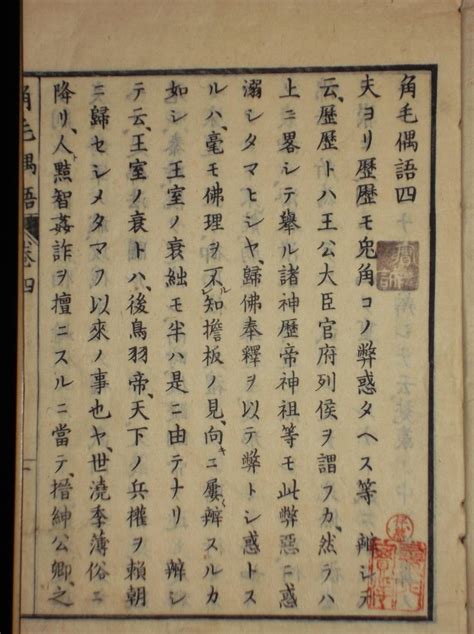 角毛偶語四
夫ヨリ歴歴モ兎角コノ弊惑タヘス等ニ辨シテ
云、歴歴トハ王公大臣官府列侯ヲ謂フカ、然ラハ
上ニ畧シテ擧ル諸神歴帝神祖等モ此弊惡ニ惑
溺シタマヒシヤ、歸佛奉釋ヲ以テ弊トシ惑トス
ルハ、毫モ佛理ヲ不知擔板ノ見、向ニ屢辨スルカ
如シ 王室ノ衰絀モ半ハ是ニ由テナリ 辨シ
テ云、王室ノ衰トハ、後鳥羽帝、天下ノ兵權ヲ賴朝
ニ歸セシメタマフ以來ノ事也ヤ、世澆季薄俗ニ
降リ、人黠智姦詐ヲ擅ニスルニ當テ、搢紳公卿、之
角毛偶語 卷四